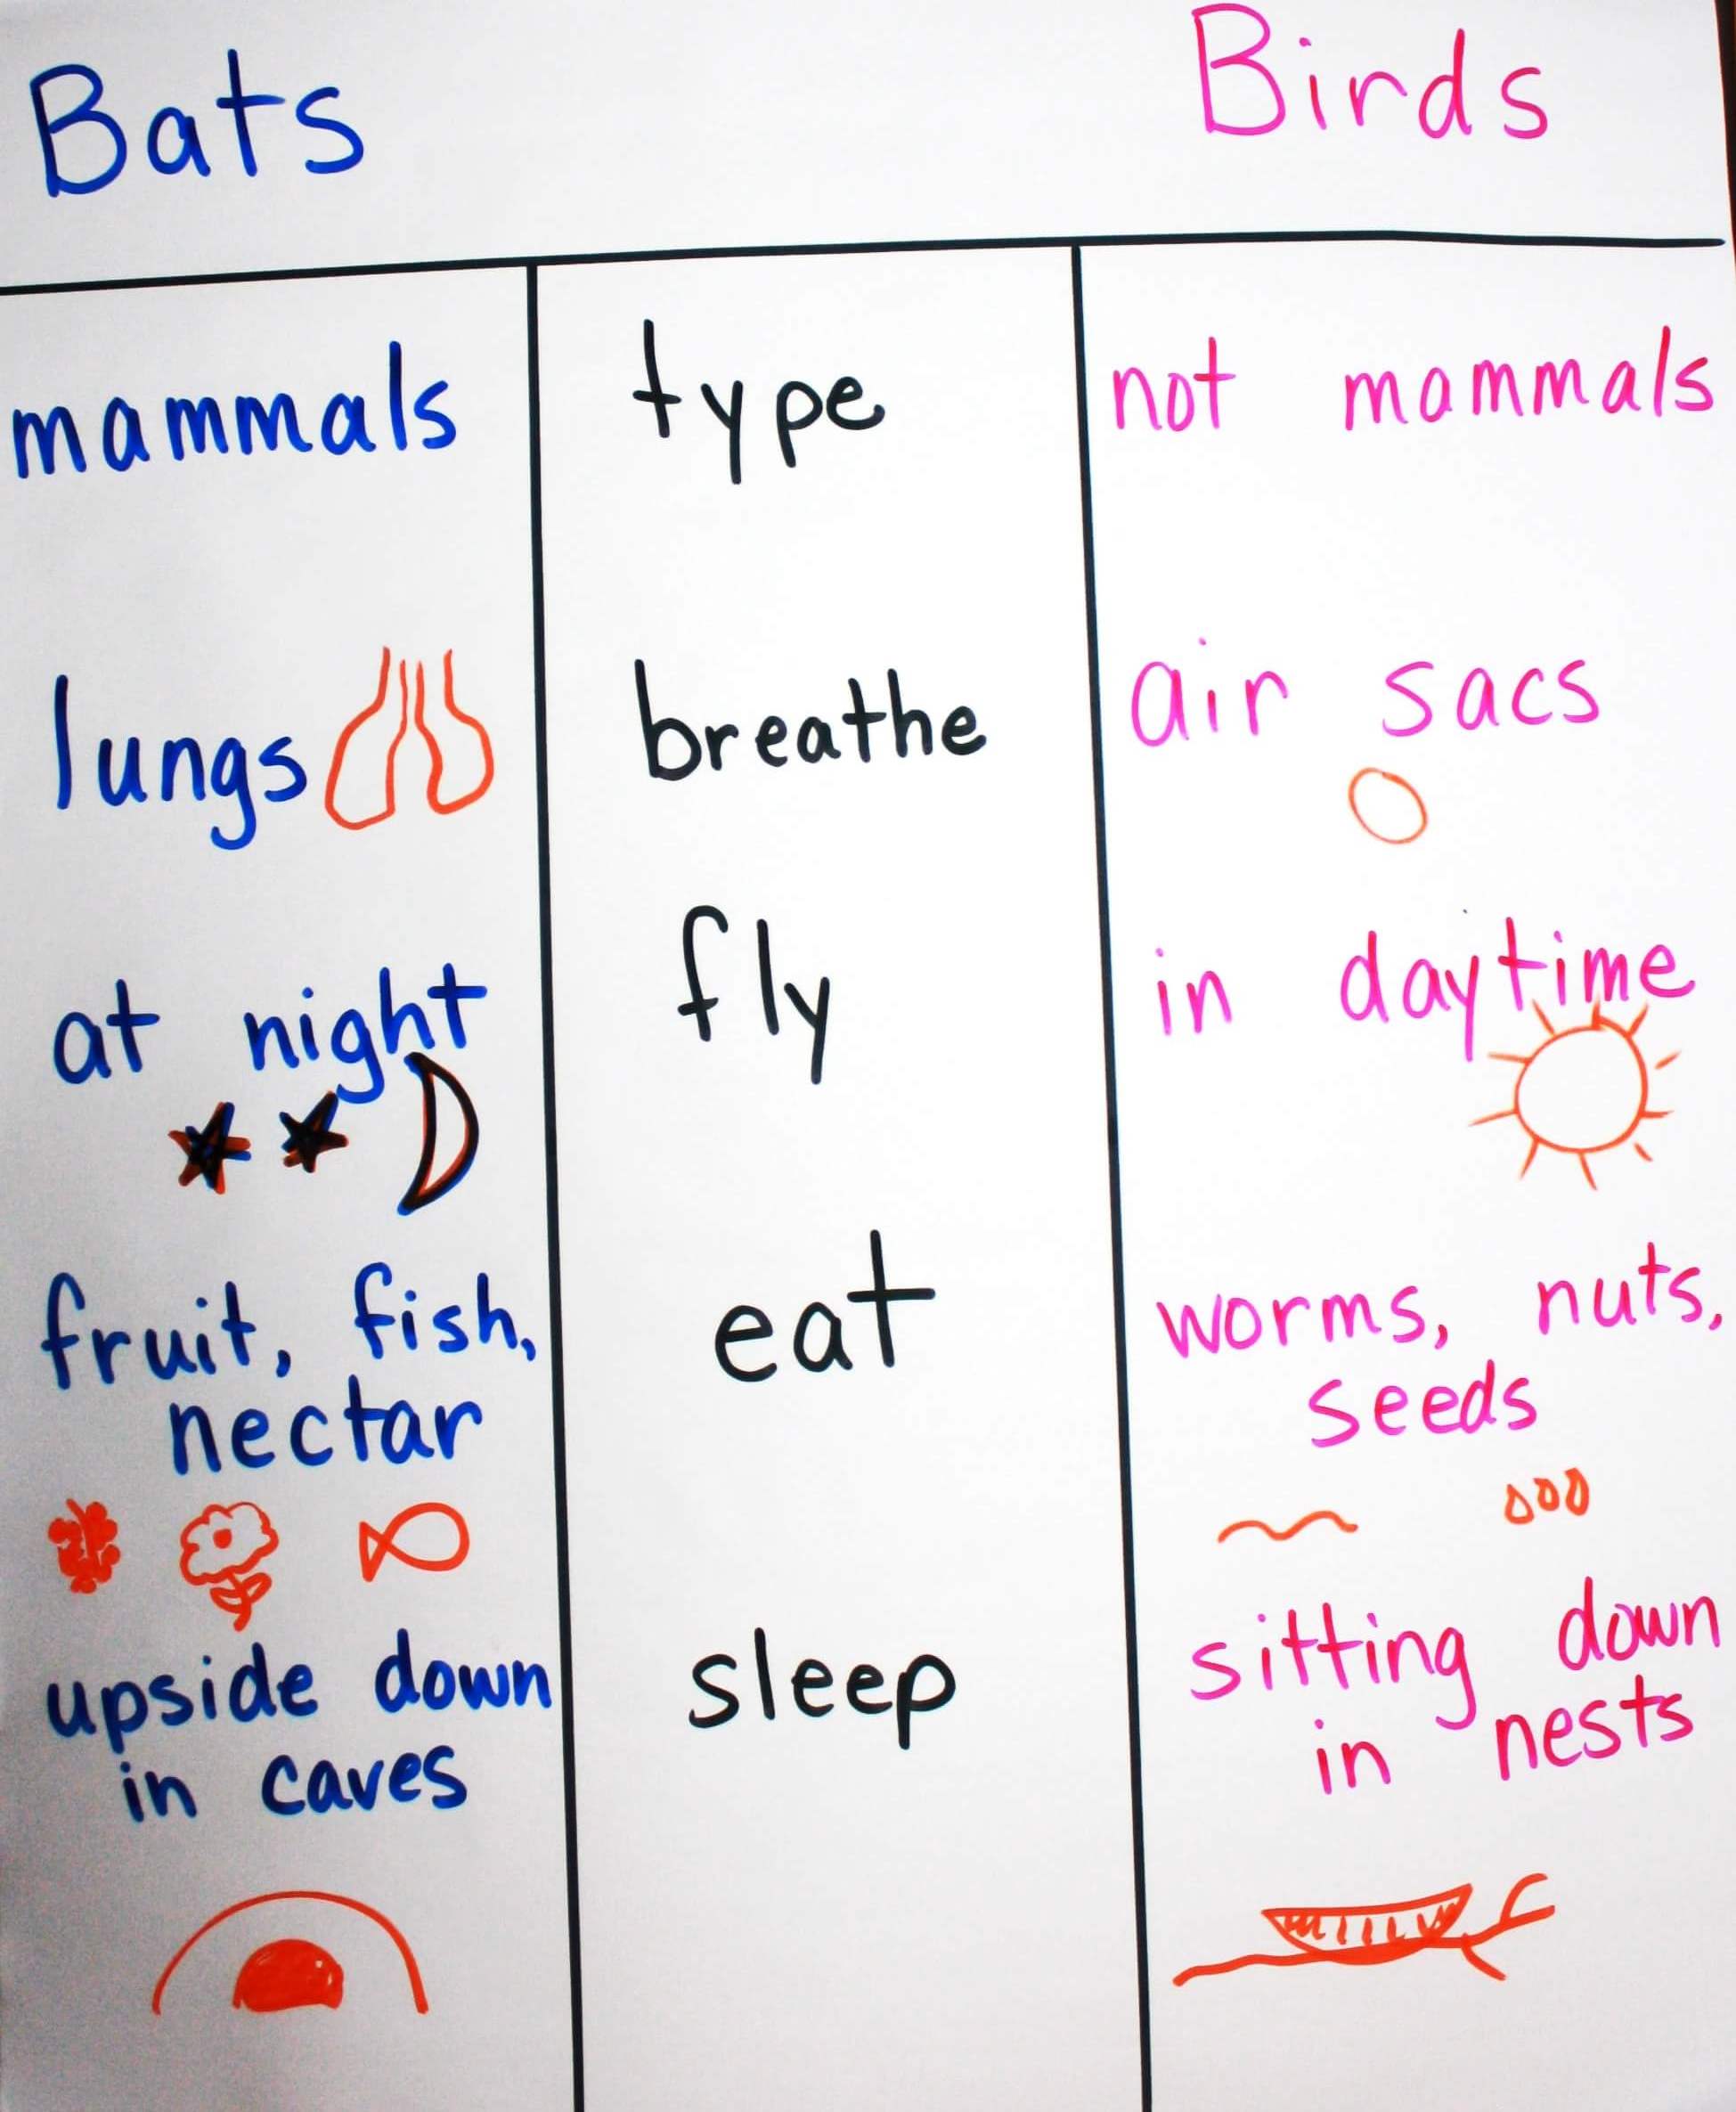 Bats Birds
mammals type not mammals
lungs breathe air sacs
at night fly in daytime
fruit, fish, eat worms, nuts,
nectar seeds
upside down sleep sitting down
in caves in nests